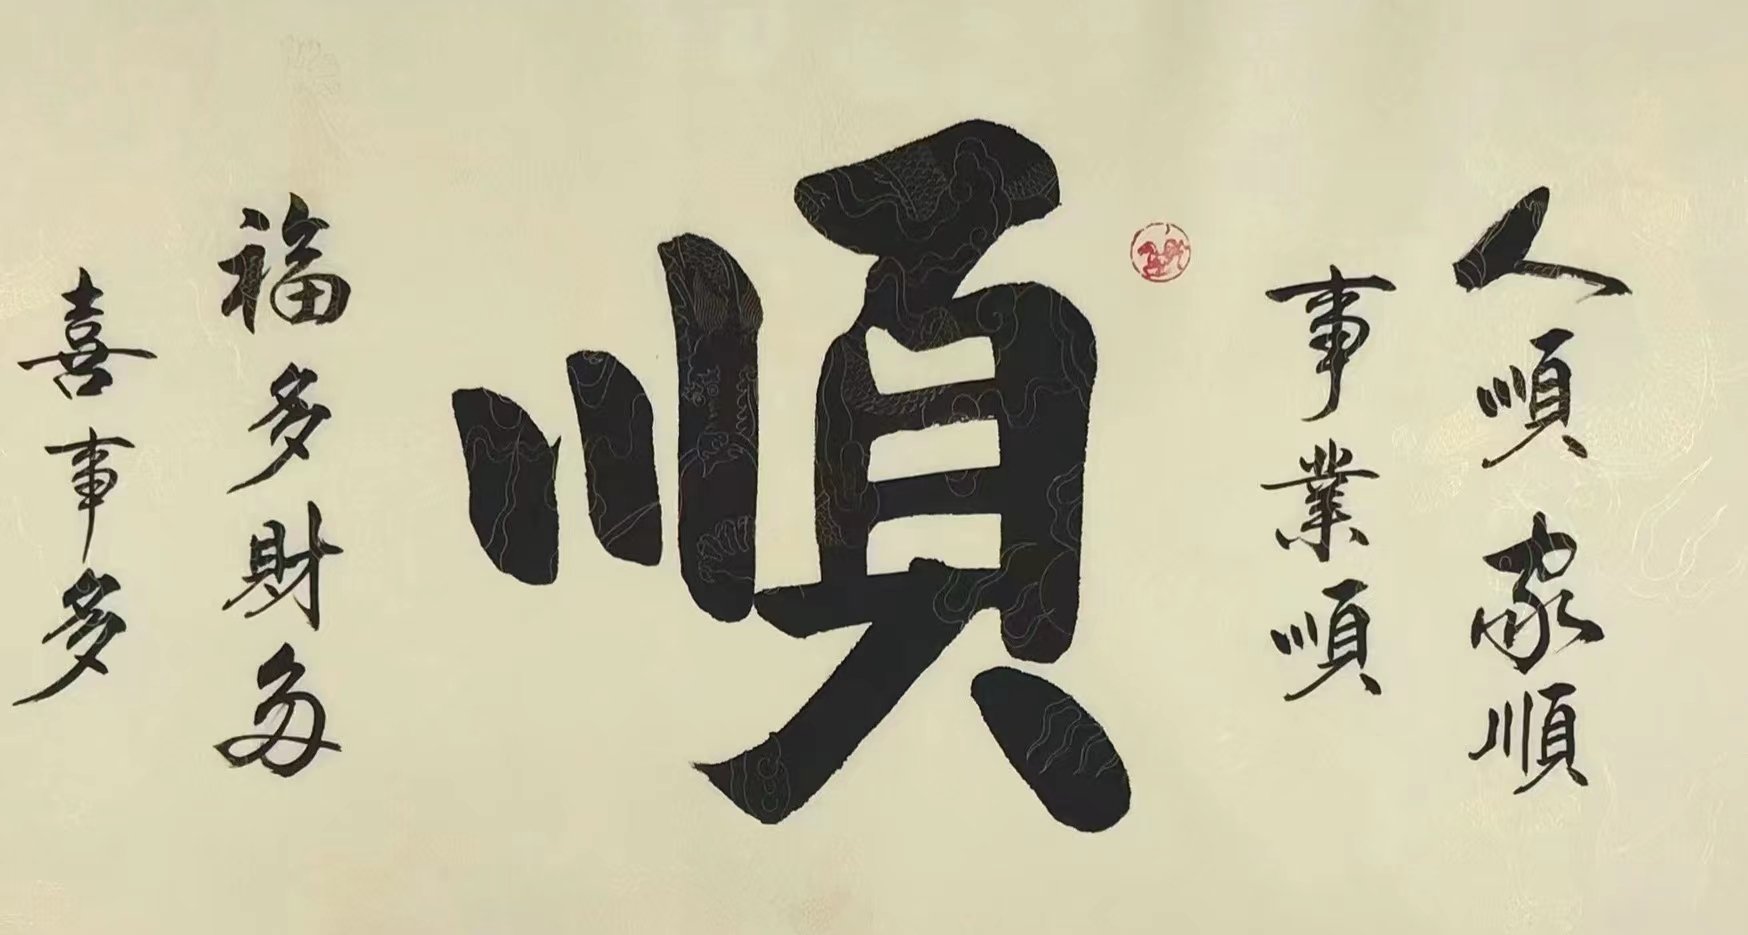 人順家順
事業順
順
福多財多
喜事多